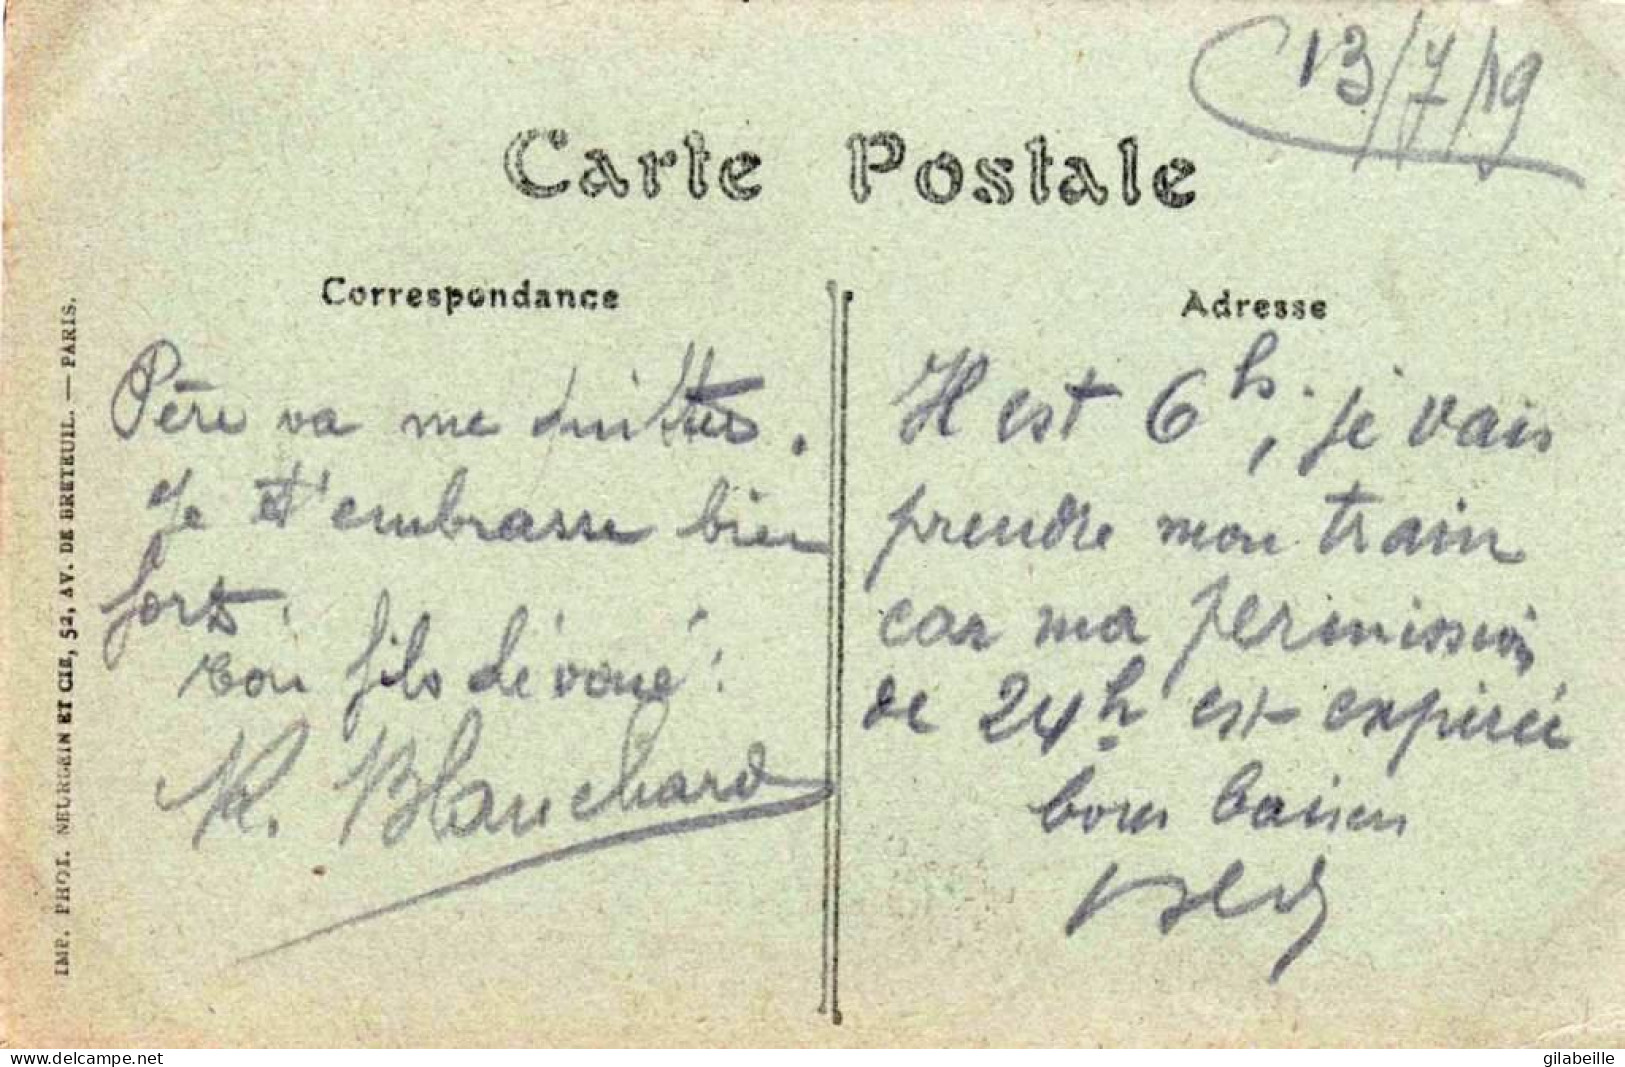 13/7/19
Carte Postale
Correspondance
Père va me quitter.
Je t'embrasse bien
fort.
ton fils dévoué :
R. Blanchard
Adresse
Il est 6h, je vais
prendre mon train
car ma permission
de 24h est expirée
bons baisers
IMP. PHOT. NEURDEIN ET CIE, 52, AV. DE BRETEUIL. — PARIS.
www.delcampe.net
gilabeille